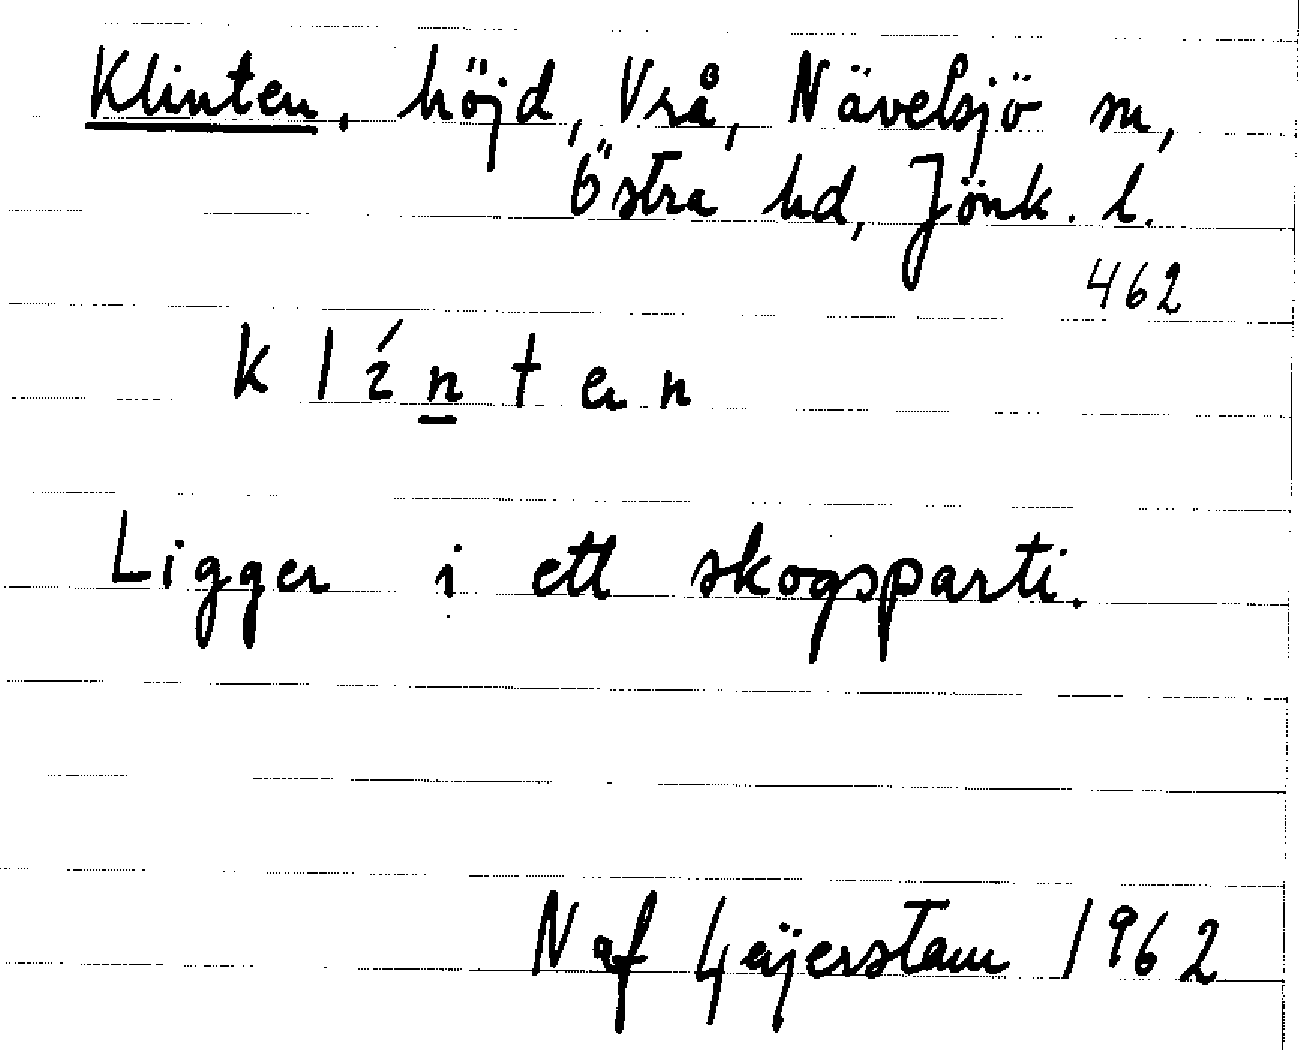 Klinten, höjd, Vrå, Nävelsjö sn,
Östra hd, Jönk. l.
462
k l í n t e n
Ligger i ett skogsparti.
N af Geijerstam 1962